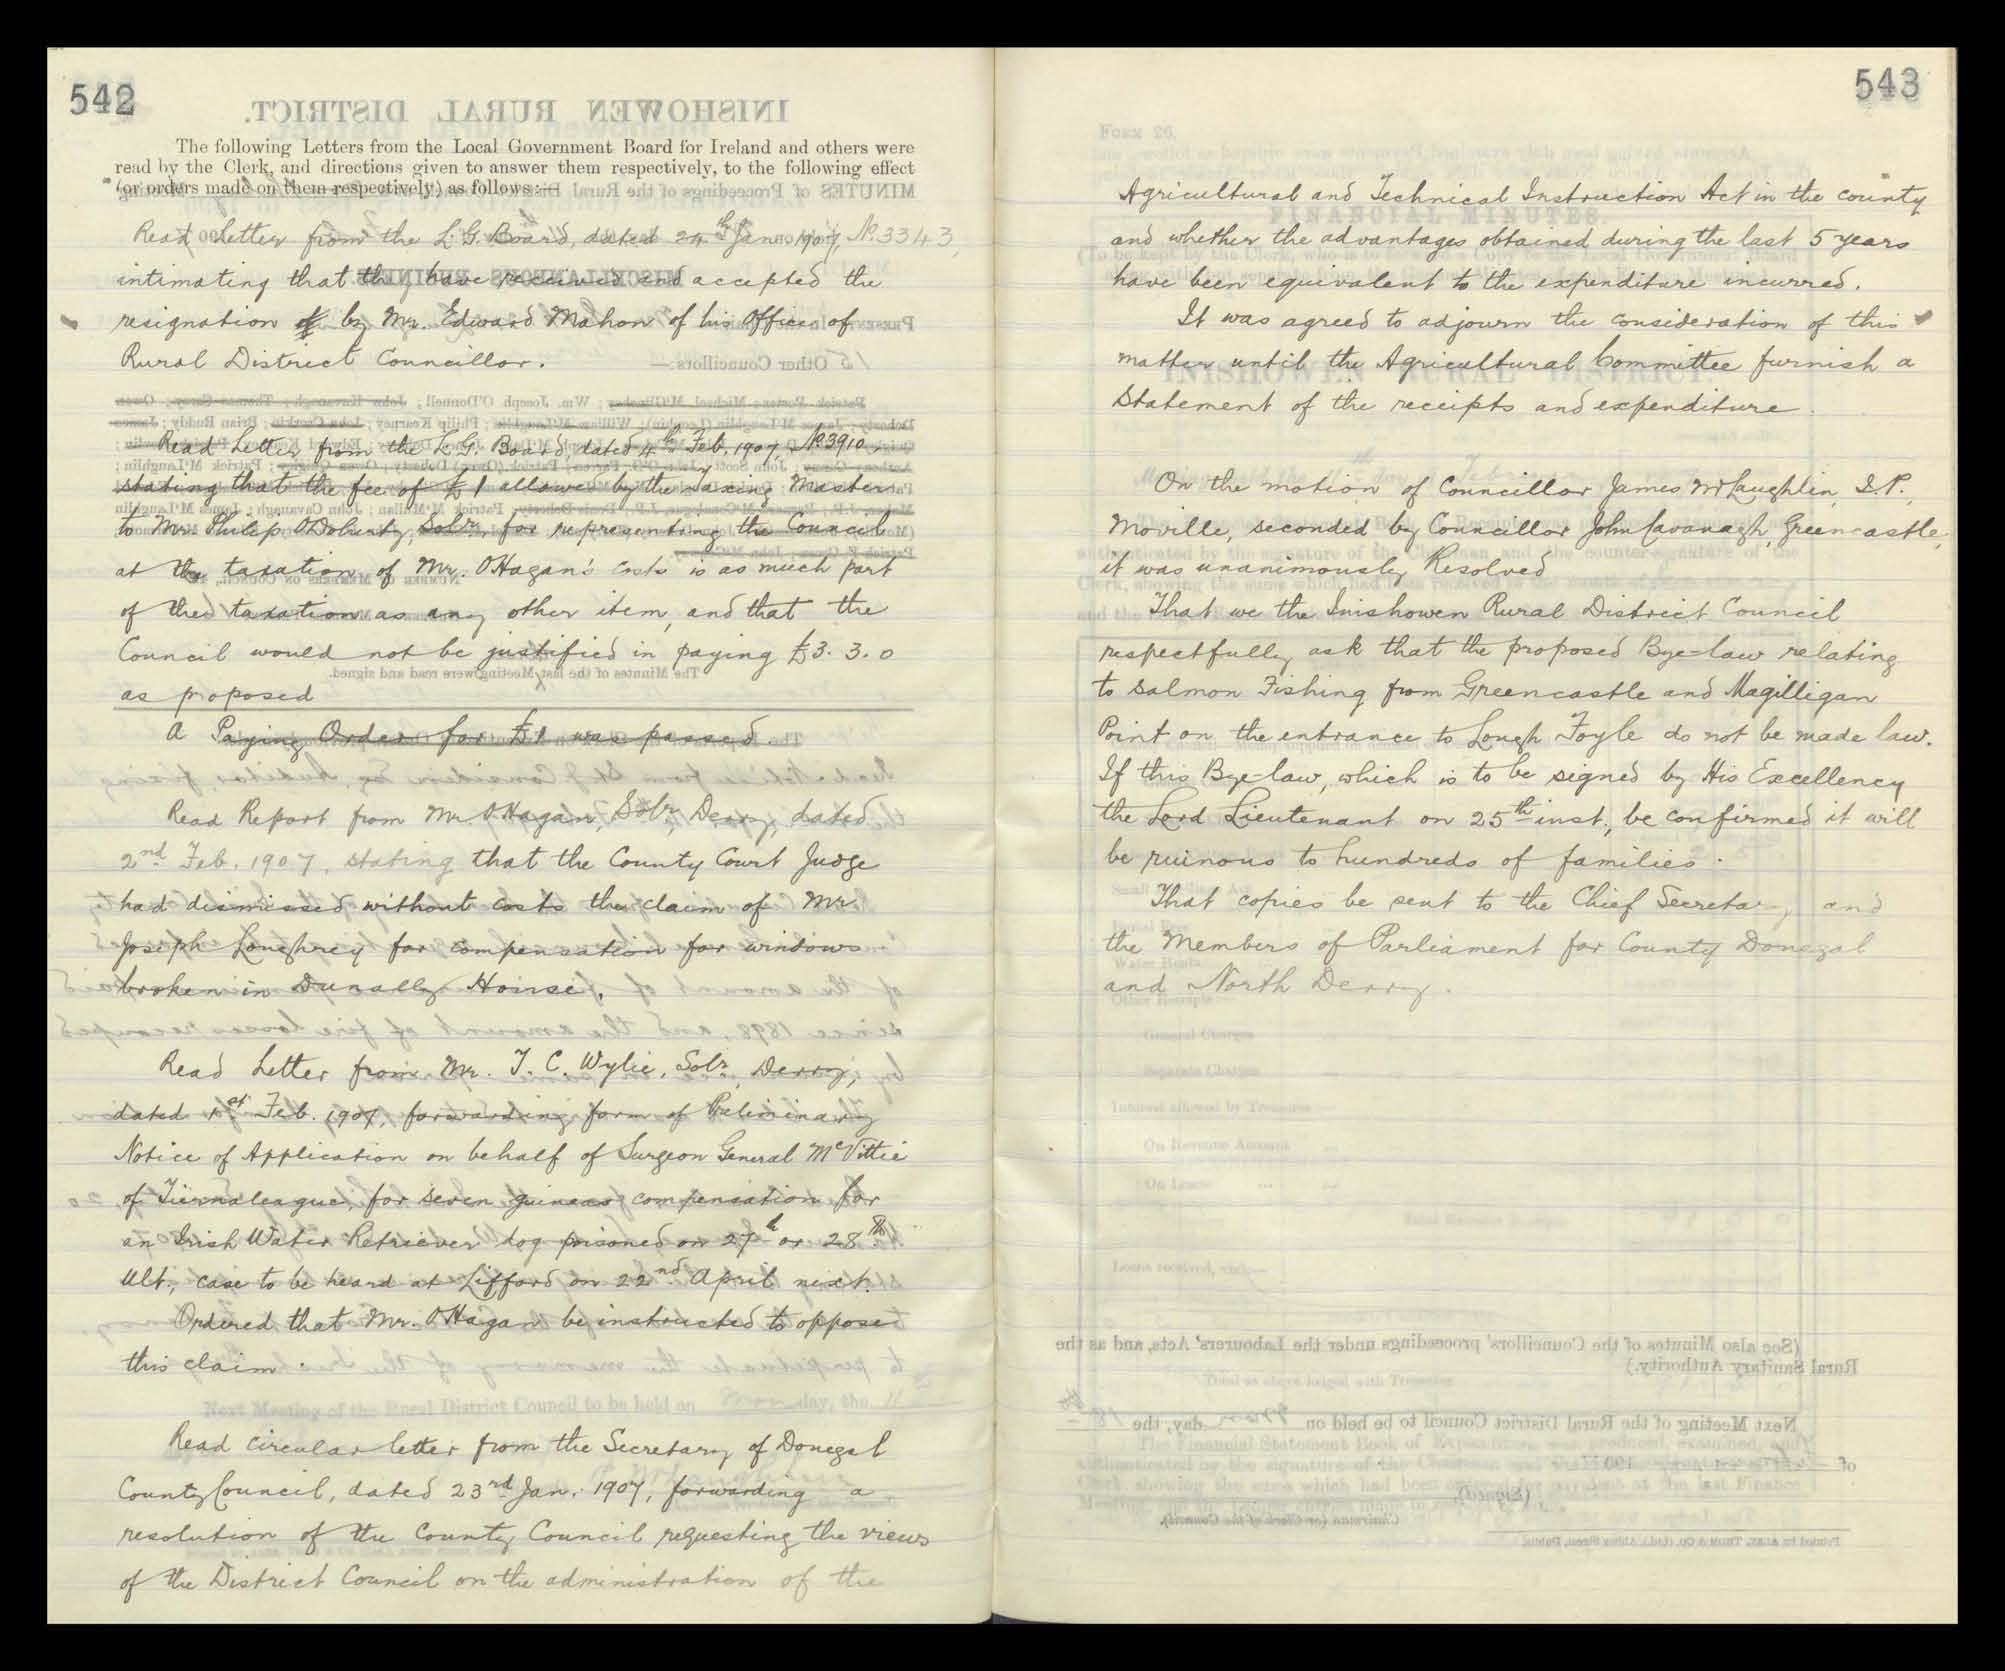 542
The following Letters from the Local Government Board for Ireland and others were
read by the Clerk, and directions given to answer them respectively, to the following effect
(or orders made on them respectively) as follows:—
Read Letter from the L. G. Board, dated 24th Jan. 1907, No. 3343,
intimating that they have received and accepted the
resignation of by Mr. Edward Mahon of his Office of
Rural District Councillor.
Read Letter from the L. G. Board, dated 4th Feb. 1907, No. 3910,
stating that the fee of £1 allowed by the Taxing Master
to Mr. Philip O'Doherty, Solr. for representing the Council
at the taxation of Mr. O'Hagan's Costs is as much part
of the taxation as any other item, and that the
Council would not be justified in paying £3. 3. 0
as proposed
A Paying Order for £1 was passed.
Read Report from Mr. O'Hagan, Solr., Derry, dated
2nd Feb. 1907, stating that the County Court Judge
had dismissed without costs the claim of Mr.
Joseph Loughrey for compensation for windows
broken in Dunally House.
Read Letter from Mr. T. C. Wylie, Solr., Derry,
dated 1st Feb. 1907, forwarding form of Preliminary
Notice of Application on behalf of Surgeon General McVittie
of Tiernaleague, for seven guineas compensation for
an Irish Water Retriever dog poisoned on 27th or 28th
Ult., case to be heard at Lifford on 22nd April next.
Ordered that Mr. O'Hagan be instructed to oppose
this claim.
Read circular letter from the Secretary of Donegal
County Council, dated 23rd Jan. 1907, forwarding a
resolution of the County Council requesting the views
of the District Council on the administration of the
543
Agricultural and Technical Instruction Act in the county
and whether the advantages obtained during the last 5 years
have been equivalent to the expenditure incurred.
It was agreed to adjourn the consideration of this
matter until the Agricultural Committee furnish a
Statement of the receipts and expenditure.
On the motion of Councillor James McLaughlin, J.P.,
Moville, seconded by Councillor John Cavanagh, Greencastle,
it was unanimously Resolved
That we the Inishowen Rural District Council
respectfully ask that the proposed Bye-law relating
to Salmon Fishing from Greencastle and Magilligan
Point on the entrance to Lough Foyle do not be made law.
If this Bye-law, which is to be signed by His Excellency
the Lord Lieutenant on 25th inst., be confirmed it will
be ruinous to hundreds of families.
That copies be sent to the Chief Secretary and
the Members of Parliament for County Donegal
and North Derry.